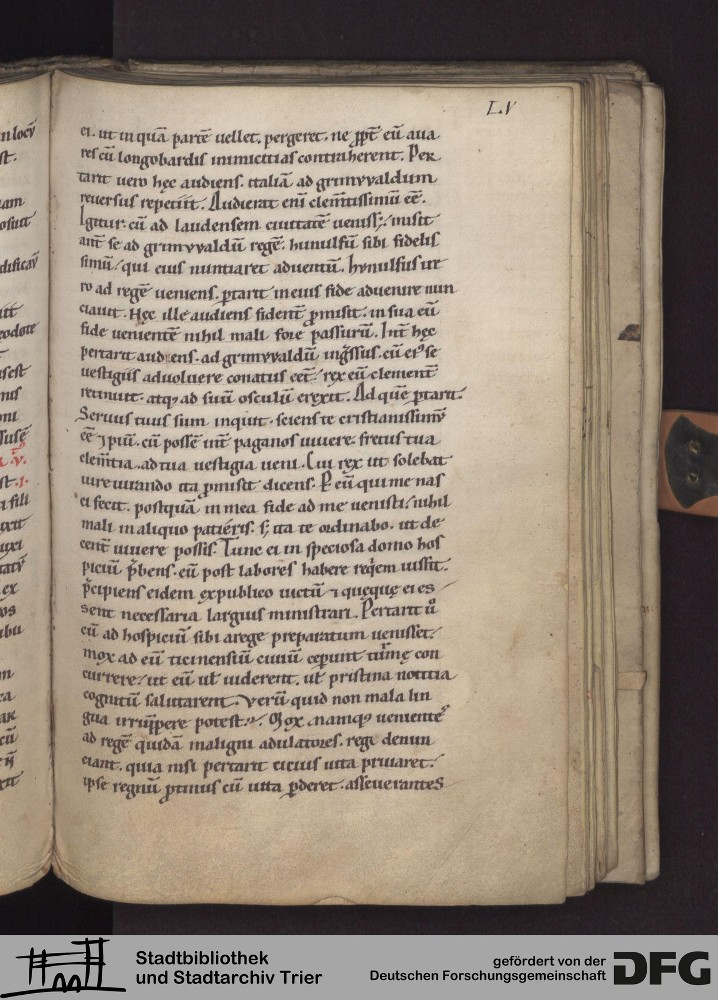 L.V
ei. ut in quā partē uellet. pergeret. ne ꝓpt̄ eū aua
res cū longobardis inimicitias contraherent. Per
tarit uero hęc audiens. italiā ad grimvvaldum
reuersus repetiit. Audierat eni clem̄tissimū eē.
Igitur cū ad laudensem ciuitatē ueniss&. misit
ant̄ se ad grimvvaldū regē. hunulfū sibi fidelis
simū. qui eius nuntiaret aduentū. hvnulfus ue
ro ad regē ueniens. ꝑtarit in eius fide aduenire nun
ciauit. Hęc ille audiens fident̄ ꝓmisit. in sua eū
fide uenientē nihil mali fore passurū. Int̄ hęc
pertarit audiens. ad grimvvaldū ingr̄ssus. cū eiꝰ se
uestigiis aduoluere conatus eēt. rex eū clement̄
retinuit. atqꝫ ad suū osculū erexit. Ad quē ꝑtarit.
Seruus tuus sum inquit. sciens te cristianissimū
eē ⁊ piū. cū possē int̄ paganos uiuere. fretus tua
clem̄tia. ad tua uestigia ueni. Cui rex ut solebat
iure iurando ita ꝓmisit dicens. P̄ eū qui me nas
ci fecit. postquā in mea fide ad me uenisti. nihil
mali in aliquo patiéris. s; ita te ordinabo. ut de
cent̄ uiuere possis. Tunc ei in speciosa domo hos
piciū p̄bens. eū post labores habere reqiem iussit.
p̄cipiens eidem ex publico uictū ⁊ quęquę ei es
sent necessaria largius ministrari. Pertarit u̇
cū ad hospiciū sibi a rege preparatum uenisset.
mox ad eū ticinensiū ciuiū ceperunt tur̄mę con
currere. ut eū ul̄ uiderent. ul̄ pristina noticia
cognitū salutarent. Verū quid non mala lin
gua irrūpere potest. Mox namqꝫ uenientes
ad regē quidā maligni adulatores. regi denun
ciant. quia nisi pertarit cicius uita priuaret.
ipse regnū ꝓtinus cū uita ꝑderet. asseuerantes
Stadtbibliothek
und Stadtarchiv Trier
gefördert von der
Deutschen Forschungsgemeinschaft
DFG